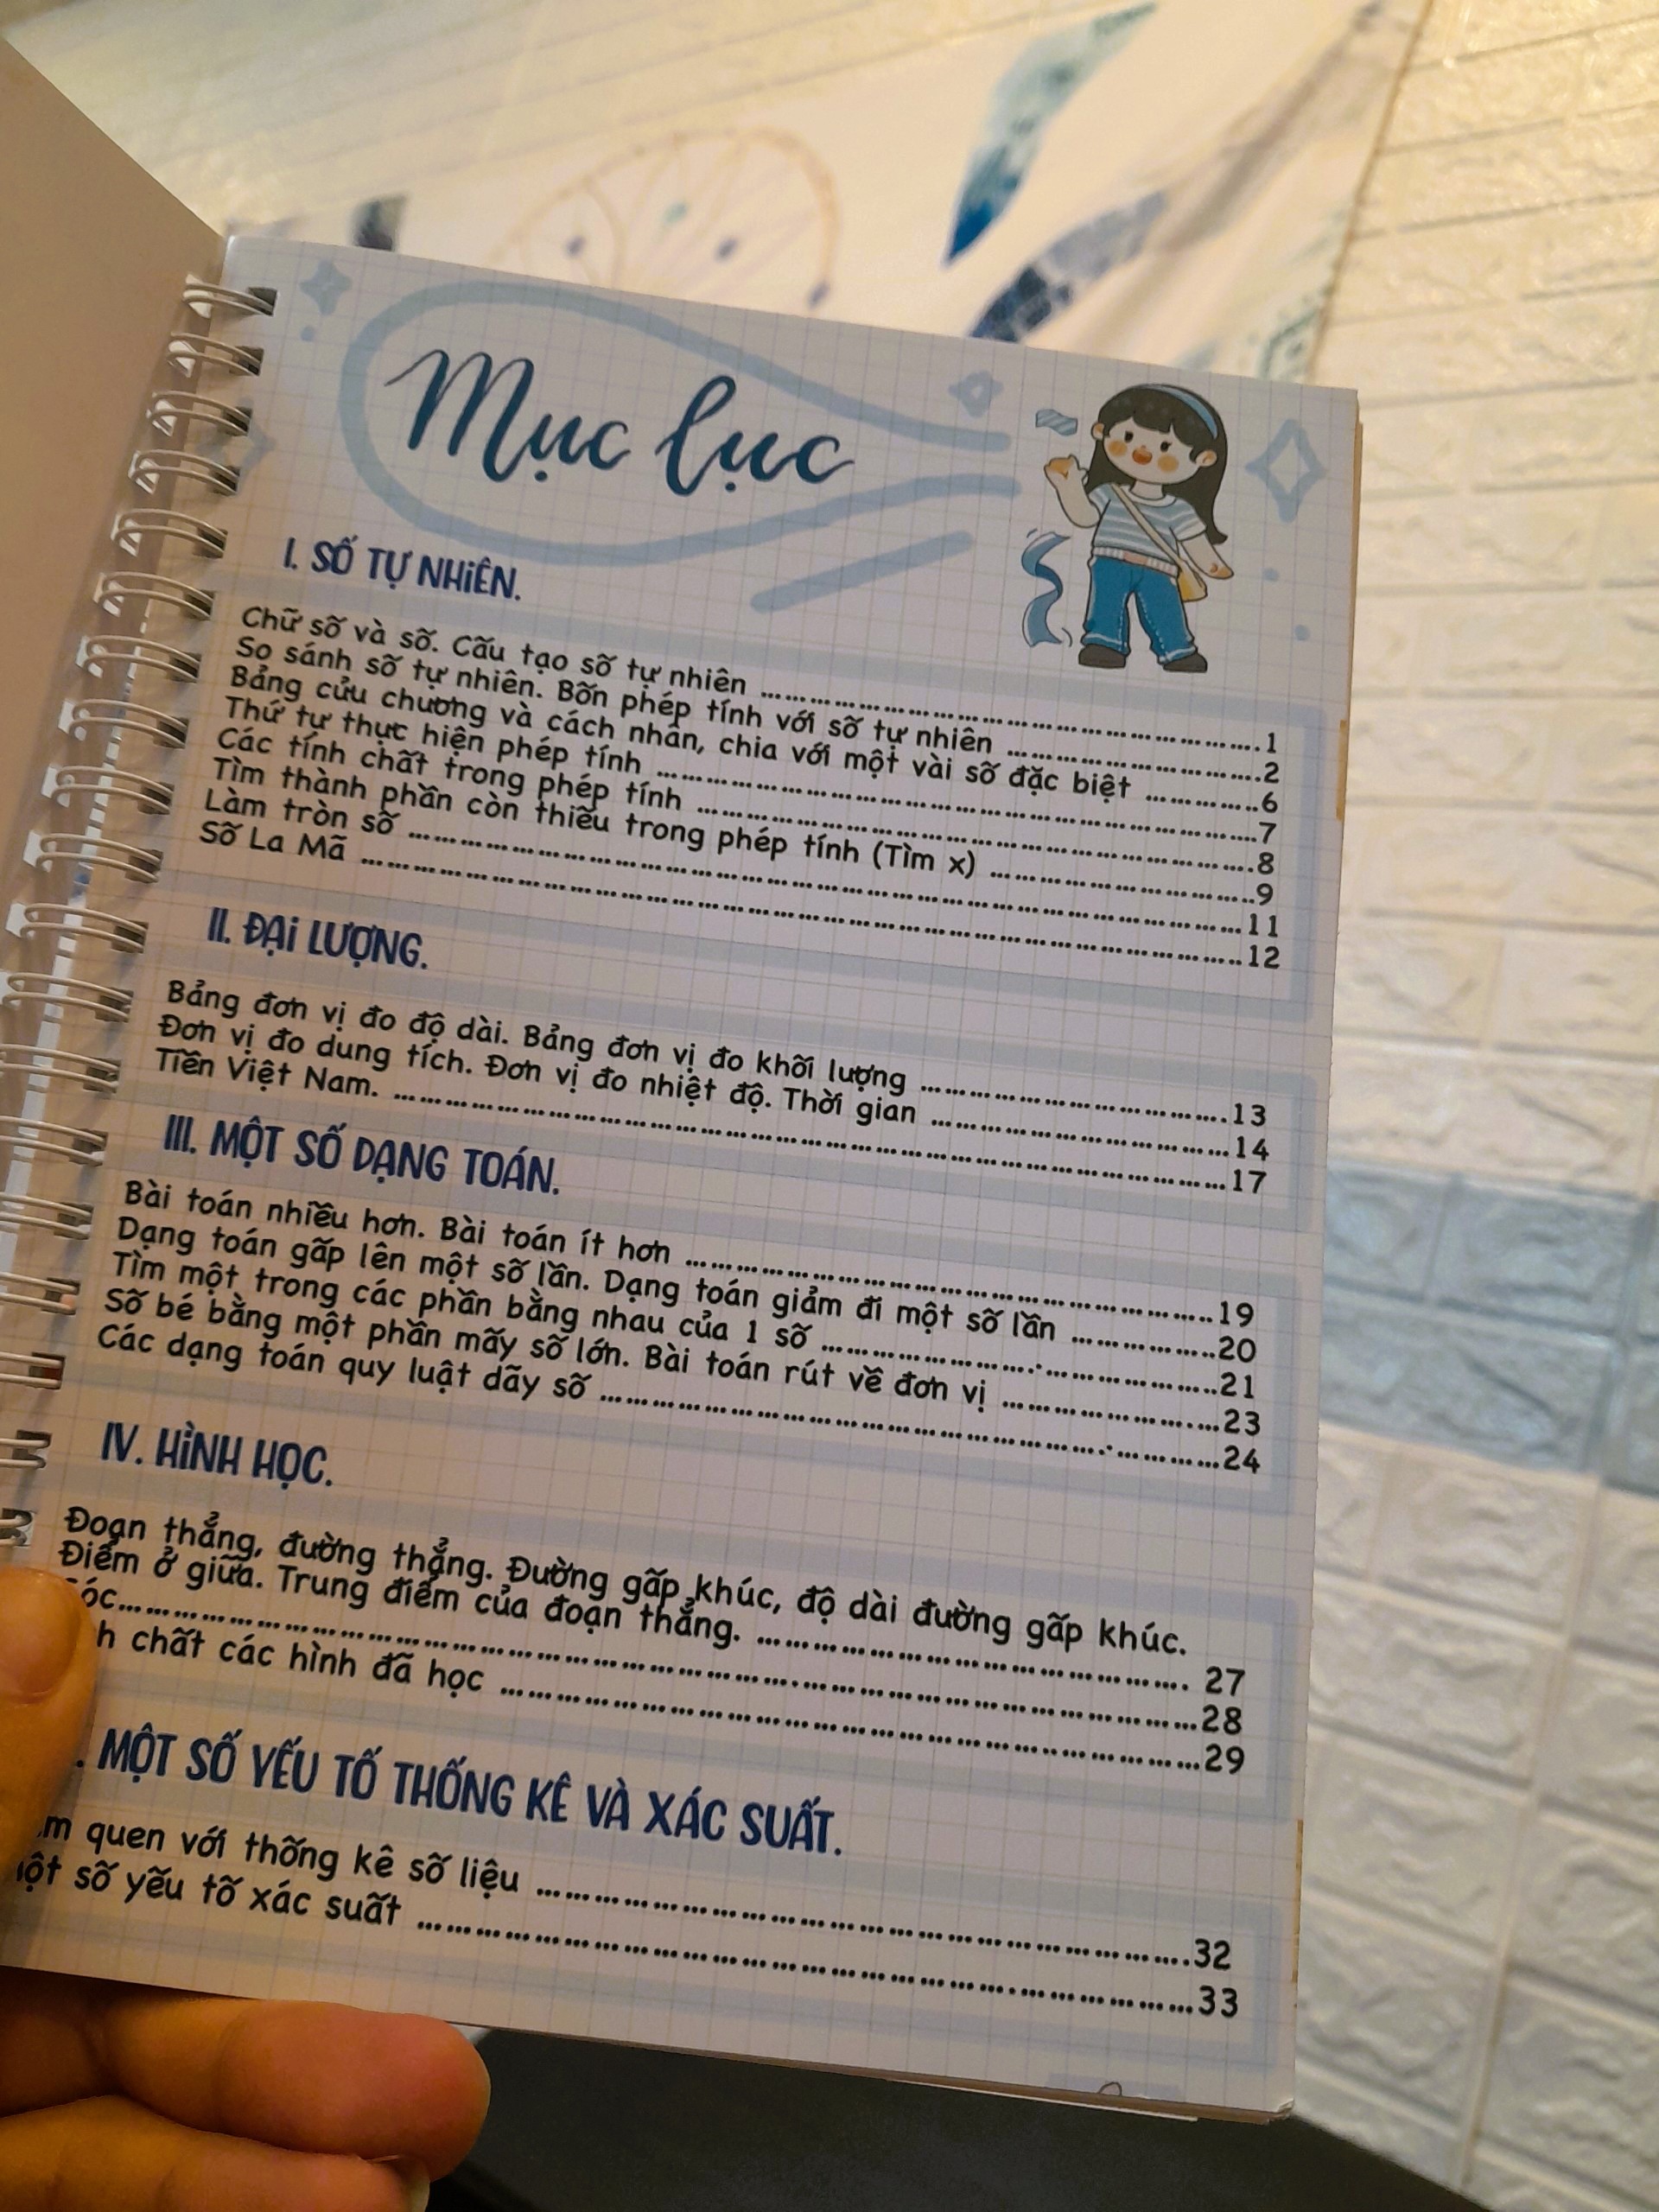 Mục lục
I. SỐ TỰ NHIÊN.
Chữ số và số. Cấu tạo số tự nhiên ................1
So sánh số tự nhiên. Bốn phép tính với số tự nhiên ................2
Bảng cửu chương và cách nhân, chia với một vài số đặc biệt ............6
Thứ tự thực hiện phép tính ................7
Các tính chất trong phép tính ................8
Tìm thành phần còn thiếu trong phép tính (Tìm x) ................9
Làm tròn số ................11
Số La Mã ................12
II. ĐẠI LƯỢNG.
Bảng đơn vị đo độ dài. Bảng đơn vị đo khối lượng ................13
Đơn vị đo dung tích. Đơn vị đo nhiệt độ. Thời gian ................14
Tiền Việt Nam. ................17
III. MỘT SỐ DẠNG TOÁN.
Bài toán nhiều hơn. Bài toán ít hơn ................19
Dạng toán gấp lên một số lần. Dạng toán giảm đi một số lần ................20
Tìm một trong các phần bằng nhau của 1 số ................21
Số bé bằng một phần mấy số lớn. Bài toán rút về đơn vị ................23
Các dạng toán quy luật dãy số ................24
IV. HÌNH HỌC.
Đoạn thẳng, đường thẳng. Đường gấp khúc, độ dài đường gấp khúc.
Điểm ở giữa. Trung điểm của đoạn thẳng. ................ 27
óc................28
h chất các hình đã học ................29
. MỘT SỐ YẾU TỐ THỐNG KÊ VÀ XÁC SUẤT.
m quen với thống kê số liệu ................32
ột số yếu tố xác suất ................33